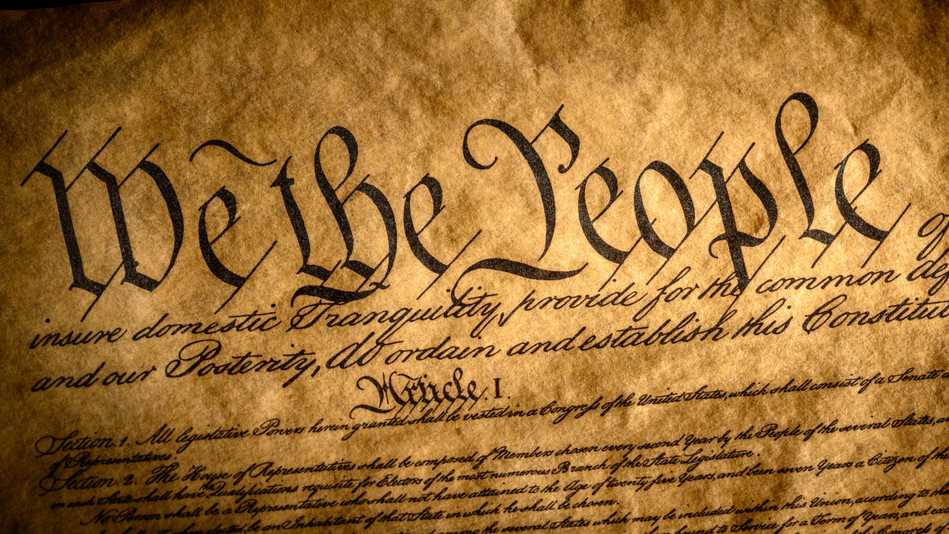 We the People of
insure domestic Tranquility, provide for the common
and our Posterity, do ordain and establish this
Article. I.
Section. 1. All legislative Powers herein granted shall be vested in a Congress of the United States, which shall consist of a Senate
of Representatives.
Section. 2. The House of Representatives shall be composed of Members chosen every second Year by the People of the several States,
in each State shall have the Qualifications requisite for Electors of the most numerous Branch of the State Legislature.
No Person shall be a Representative who shall not have attained to the Age of twenty five Years, and been seven Years a Citizen of the
be an Inhabitant of that State in which he shall be chosen.
among the several States which may be included within this Union, according to
bound to Service for a Term of Years, and